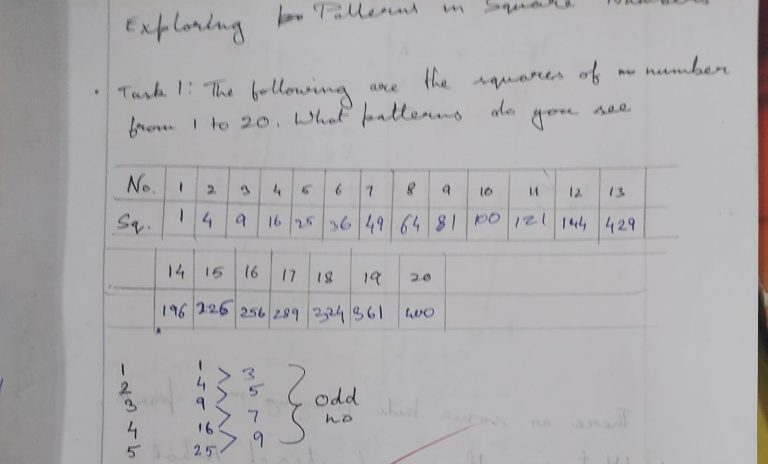 Exploring Patterns in Square Numbers
Task 1: The following are the squares of number
from 1 to 20. What patterns do you see
No. 1 2 3 4 5 6 7 8 9 10 11 12 13
Sq. 1 4 9 16 25 36 49 64 81 100 121 144 429
14 15 16 17 18 19 20
196 226 256 289 324 361 400
1 1
3
2 4
5
3 9 odd
7 no
4 16
9
5 25